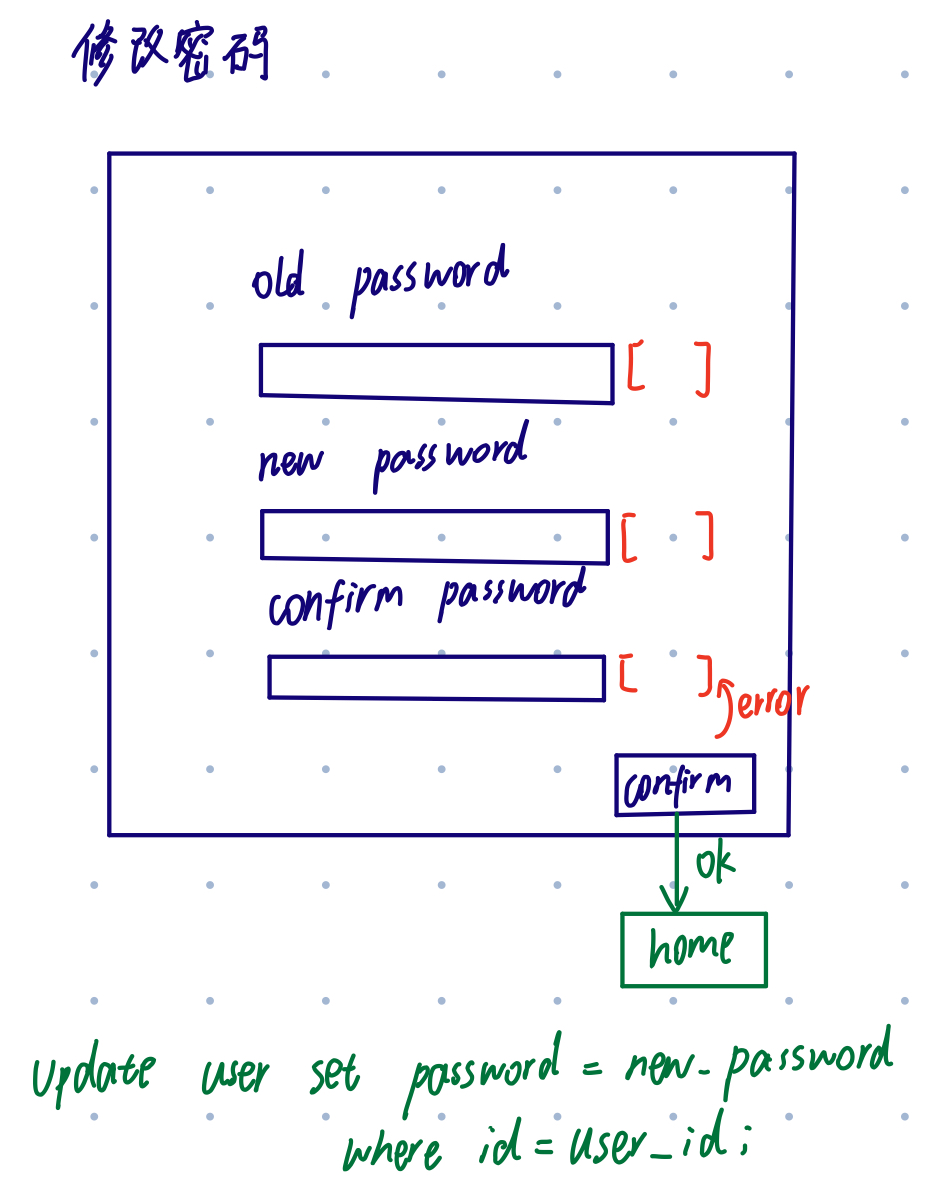 修改密码
old password
[ ]
new password
[ ]
confirm password
[ ]
error
confirm
ok
home
update user set password = new_password
where id = user_id;